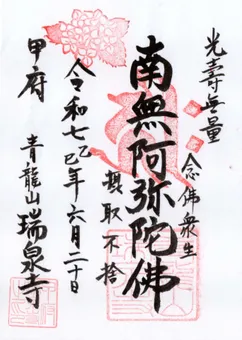 光壽無量
念佛衆生
南無阿弥陀佛
摂取不捨
令和七乙巳年六月二十日
甲府
青龍山瑞泉寺